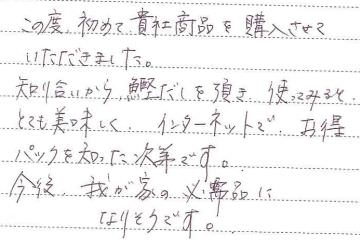 この度、初めて貴社商品を購入させて
いただきました。
知り合いから、鰹だしを頂き、使ってみると、
とても美味しく、インターネットで、お得
パックを知った次第です。
今後、我が家の必需品に
なりそうです。